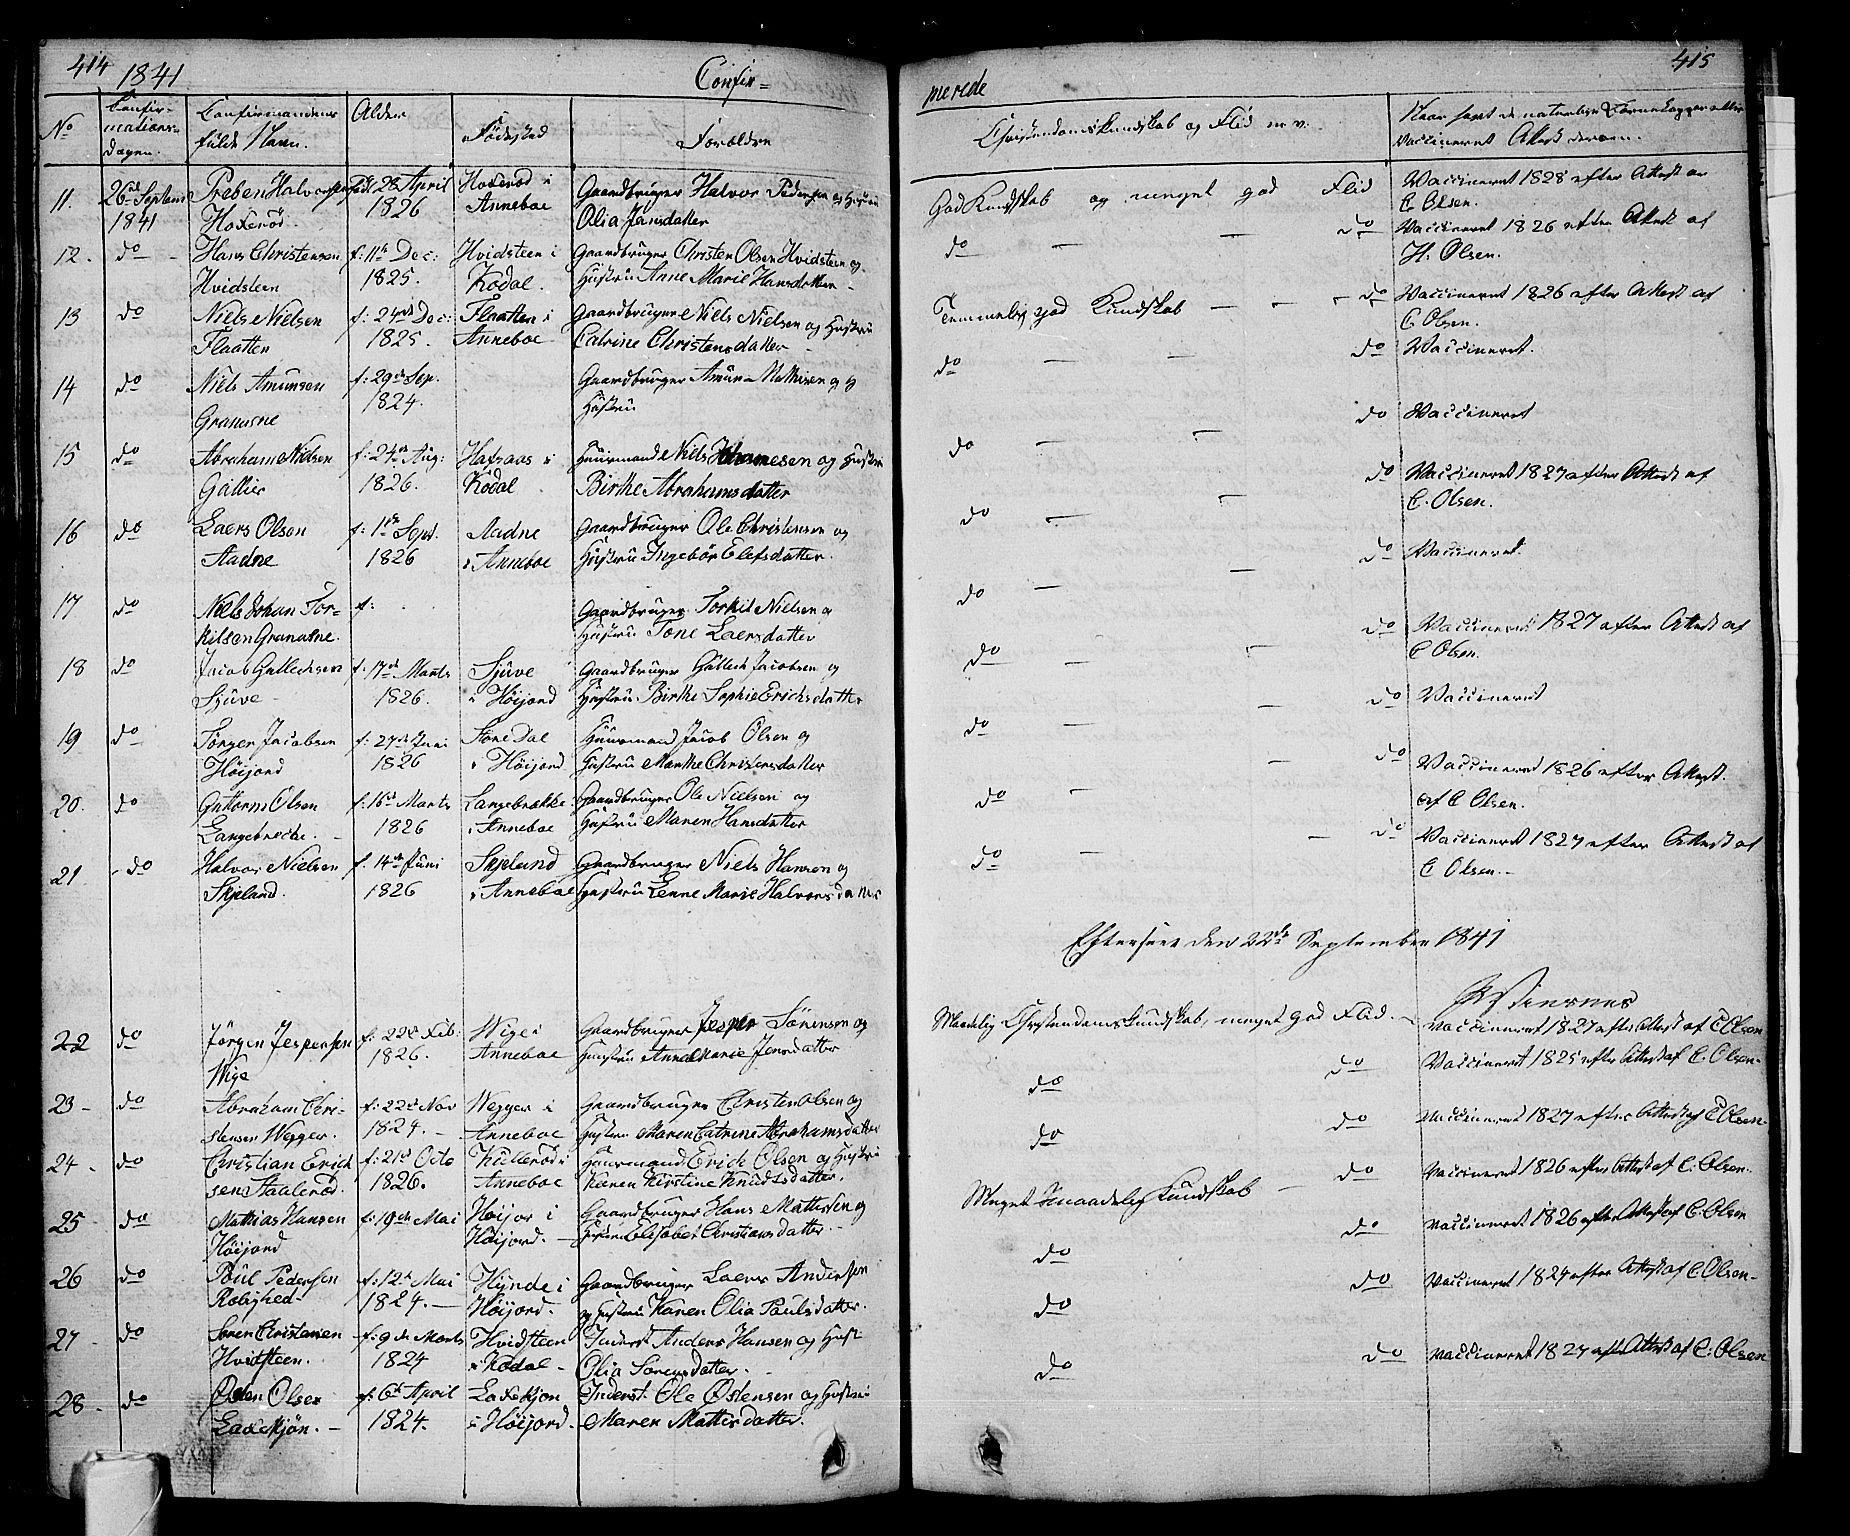 414 1841 Confir=
No
Confir-
mations-
Dagen.
Confirmandens
fulde Navn.
Alder
Fødested
Forældre
11. 26de Septembr Preben Halvorsen Født 28 April Hoxerød i Gaardbruger Halvor Pedersen og Hustru
1841 Hoxerød. 1826 Anneboe Olia Jansdatter
12. do Hans Christensen f: 11te Dec: Hvidsteen i Gaardbruger Christen Olsen Hvidsteen og
Hvidsteen 1825. Kodal. Hustru Anne Marie Hansdatter
13 do Niels Nielsen f: 24de Dec: Flaatten i Gaardbruger Niels Nielsen og Hustru
Flaatten 1825. Anneboe Catrine Christensdatter
14 do Niels Amunsen f: 29de Sep. Gaardbruger Amun Mathisen og
Granerne 1824. Hustru
15 do Abraham Nielsen f: 24de Aug: Hafsaas i Huusmand Niels Johannesen og Hustru
Gallier 1826. Kodal Birthe Abrahamsdatter
16 do Laers Olsen f: 1de Sept. Aadne Gaardbruger Ole Christensen og
Aadne 1826 i Anneboe Hustru Ingebør Elefsdatter.
17 do Niels Johan Tor- f: Gaardbruger Torkil Nielsen og
kilsen Granerne. Hustru Tone Laersdatter
18 do Jacob Gulleksen f: 17de Marts Sjuve Gaardbruger Gullech Jacobsen og
Sjuve 1826. i Höijord Hustru Birthe Sophie Erichsdatter
19 do Jörgen Jacobsen f: 27de Juni Store Dal Huusmand Jacob Olsen og
Höijord 1826 i Höijord Hustru Marthe Christensdatter
20. do Guttorm Olsen f: 16de Marts Langebrække Gaardbruger Ole Nielsen og
Langebreche. 1826 i Anneboe Hustru Maren Hansdatter
21 do Halvor Nielsen f. 14de Juni Skjelland Gaardbruger Niels Hansen og
Skjeland. 1826 i Anneboe Hustru Lenne Marie Halvorsdatter
22 do Jörgen Jespersen f: 22de Feb: Wige i Gaardbruger Jesper Sörensen og
Wige 1826. Anneboe Huustru Anne Marie Jensdatter
23 do Abraham Chri- f: 22de Nov Wegger i Gaardbruger Christen Olsen og
stensen Wegger. 1824. Anneboe Hustru Maren Catrine Abrahamsdatter
24 do Christian Erich f: 21de Octo Kullerød i Huusmand Erich Olsen og Hustru
sen Staalerød. 1826. Anneboe Karen Kirstine Knudsdatter.
25 do Mathias Hansen f: 19de Mai Höijor i Gaardbruger Hans Mathisen og
Höijord Höijord. Hustru Elisabet Christiansdatter.
26 do Poul Pedersen f: 12de Mai Hynde i Gaardbruger Laers Andersen
Rolighed 1824. Höijord. og Hustru Karen Olia Paulsdatter.
27 do Søren Christensen f: 9de Marts Hvidsteen Inderst Anders Hansen og Hust
Hvidsteen. 1824 i Kodal Olia Sorensdatter
28 do Østen Olsen f: 6te April Laxekjøn Inderst. Ole Østensen og Hustru
Laxekjøn. 1824. i Höijord. Maren Mattisdatter.
415
merede
Christendomskundskab og Flid m.v.
Naar havt de naturlige Børnekopper eller
Vaccineret Attest derom.
God Kundskab og meget god Flid Vaccineret 1828 efter Attest av
C. Olsen.
do — — do Vaccineret 1826 efter Attest af
H. Olsen.
Temmelig god Kundskab — — do Vaccineret 1826 efter Attest af
C. Olsen.
do — — do Vaccineret.
do — — do Vaccineret
do — — do Vaccineret 1827 efter Attest af
C. Olsen.
do — — do Vaccineret.
do — — do Vaccineret 1827 efter Attest af
C Olsen.
do — — do Vaccineret
do — — do Vaccineret 1826 efter Attest.
af C Olsen.
do — — do Vaccineret 1827 efter Attest af
C Olsen.
Efterseet den 22de September 1841
Maadelig Christendomskundskab, meget god Flid. Vaccineret 1827 efter Attest af C Olsen
do do Vaccineret 1825 efter Attest af C. Olsen
do do Vaccineret 1827 efter Attest af C Olsen
Meget maadelig Kundskab — do Vaccineret 1826 efter Attest af C. Olsen.
do do Vaccineret 1826 efter Attest af C. Olsen
do do Vaccineret 1824 efter Attest af C. Olsen
do do Vaccineret 1827 efter Attest af C. Olsen